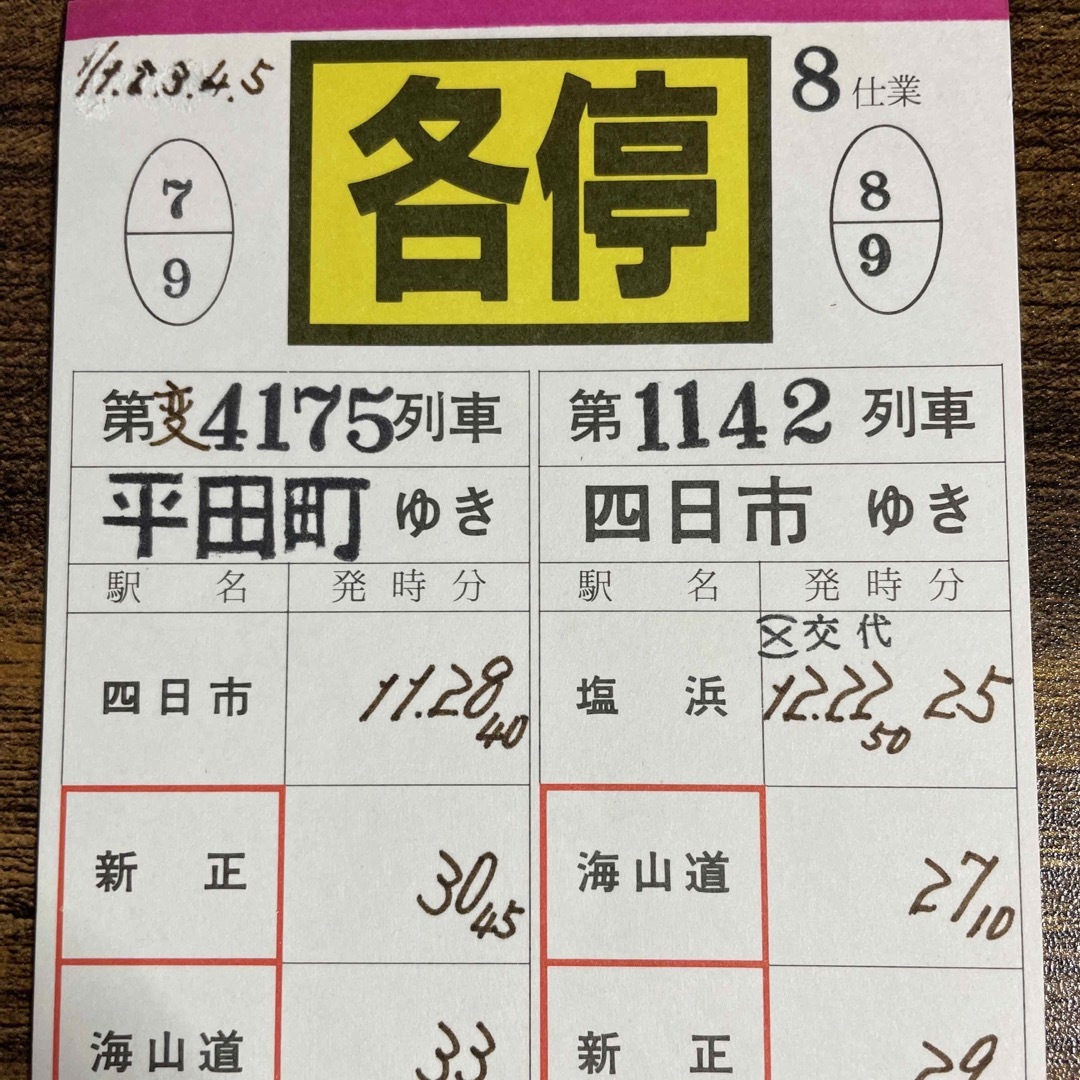 1/1.2.3.4.5
各停
8仕業
7
9
8
9
第変4175列車
平田町ゆき
駅名 発時分
四日市 11.28 40
新正 30 45
海山道 33
第1142列車
四日市ゆき
駅名 発時分
交代
塩浜 12.22 50 25
海山道 27 10
新正 29